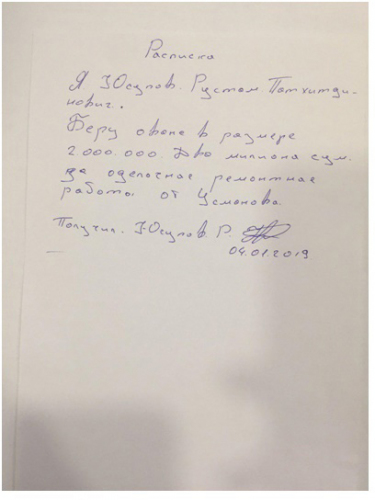 Расписка
Я Юсупов. Рустам Патхитди-
нович.
Беру аванс в размере
2.000.000. Два миллиона сум.
за оделочная ремонтная
работы от Усманова.
Получил. Юсупов Р.
04.01.2019